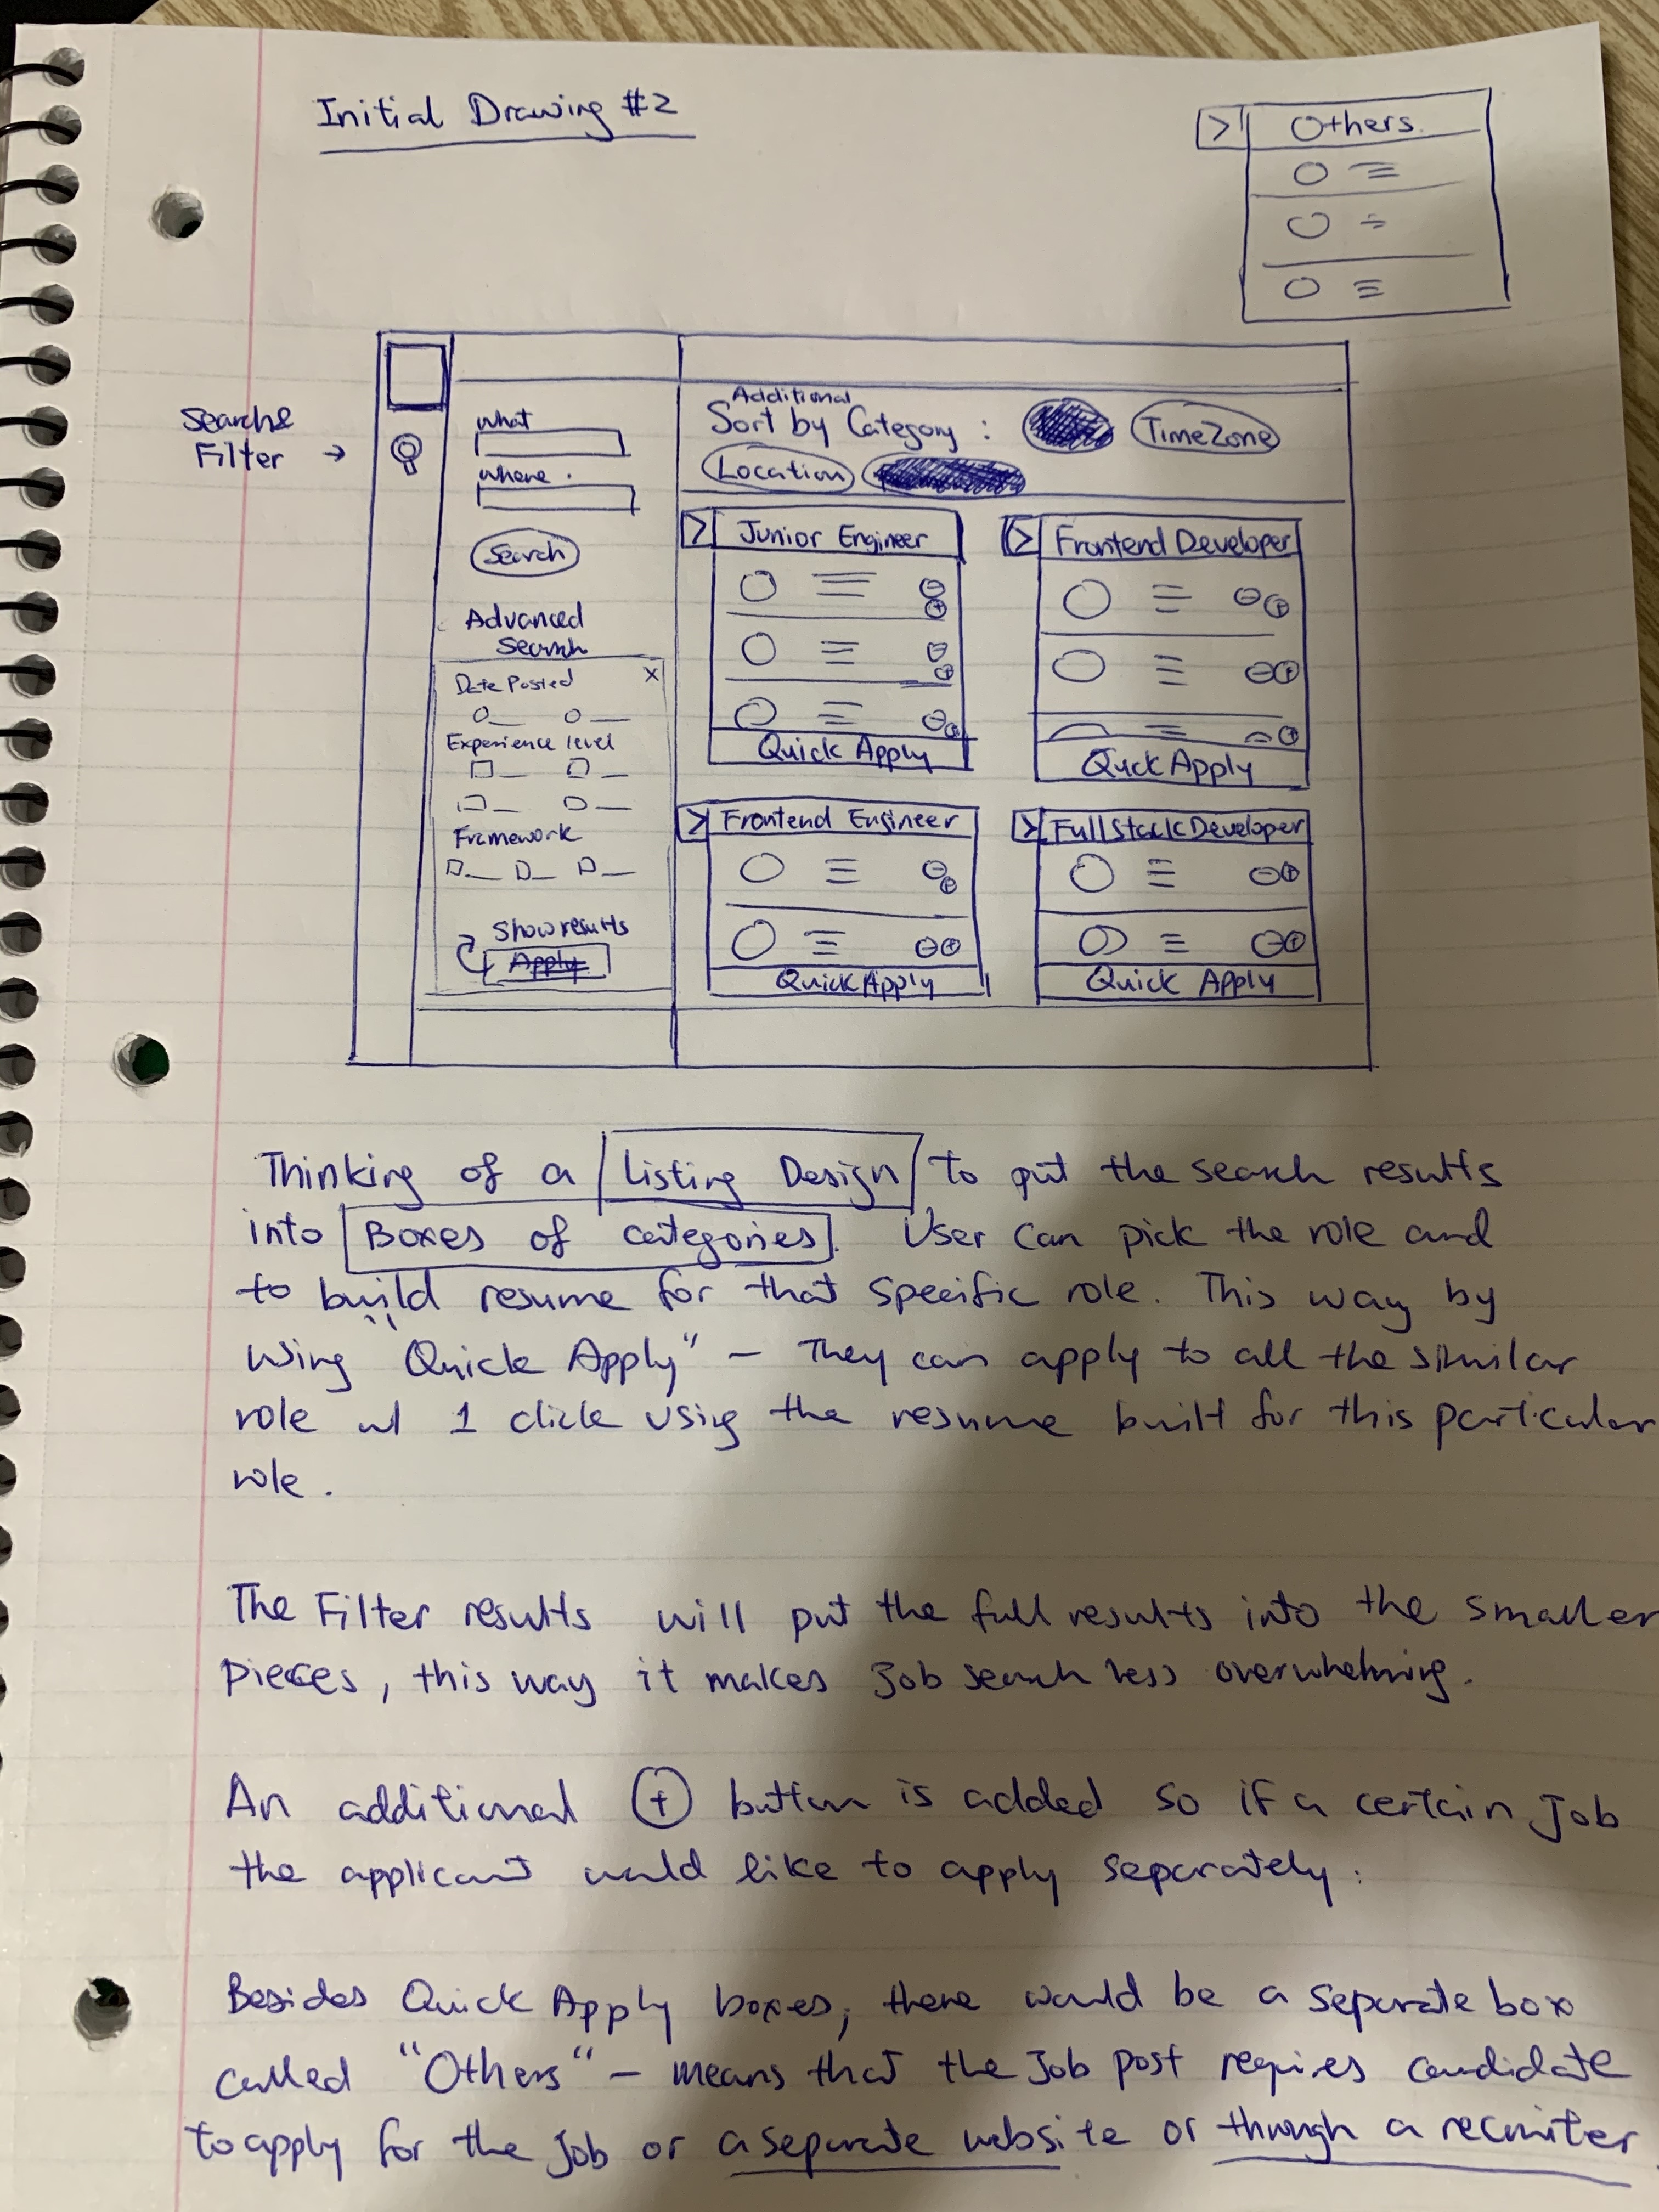 Initial Drawing #2
> Others.
Search&
Filter →
what
where.
Search
Advanced
Search
Date Posted X
Experience level
Framework
Show results
Apply
Additional
Sort by Category : TimeZone
Location
> Junior Engineer
Quick Apply
> Frontend Developer
Quck Apply
> Frontend Engineer
Quick Apply
> FullStack Developer
Quick Apply
Thinking of a Listing Design to put the search results
into Boxes of categories. User can pick the role and
to build resume for that specific role. This way by
using "Quick Apply" – They can apply to all the similar
role w/ 1 click using the resume built for this particular
role.
The Filter results will put the full results into the smaller
pieces, this way it makes Job search less overwhelming.
An additional + button is added so if a certain Job
the applicant would like to apply separately.
Besides Quick Apply boxes, there would be a separate box
called "Others" – means that the Job post requires candidate
to apply for the Job or a separate website or through a recruiter